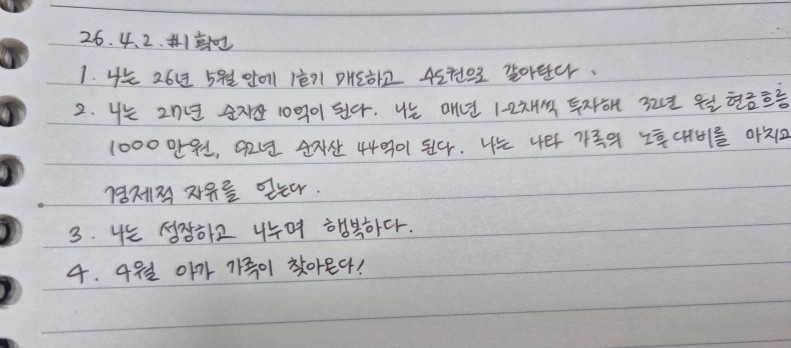 26.4.2. #1 확언
1. 나는 26년 5월 안에 1호기 매도하고 수도권으로 갈아탄다.
2. 나는 27년 순자산 10억이 된다. 나는 매년 1-2채씩 투자해 32년 월 현금흐름
1000만원, 42년 순자산 44억이 된다. 나는 나와 가족의 노후대비를 마치고
경제적 자유를 얻는다.
3. 나는 성장하고 나누며 행복하다.
4. 4월 아가 가족이 찾아온다!